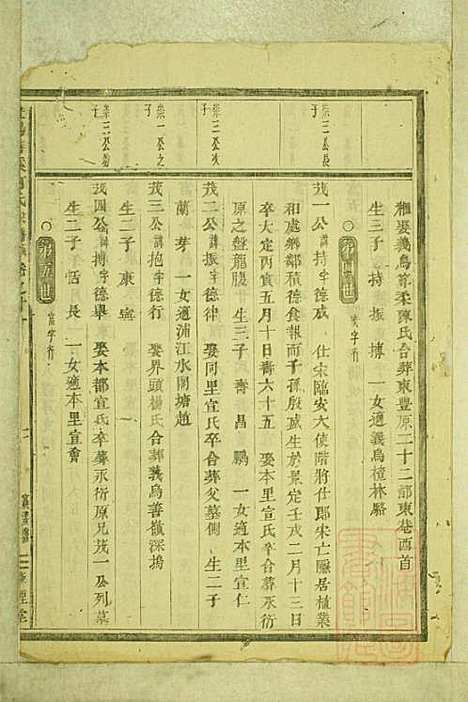 相娶義烏常柔陳氏合葬東豐原二十二都東巷酉首
生三子 持 振 搏 一女適義烏樟林駱
第四世
茂字行
崇三公長子
茂一公諱持字德成 仕宋臨安大使階將仕郎宋亡隱居植業
和處鄉鄰積德食報而子孫殷盛生於景定壬戌二月十三日
卒大定丙寅五月十日壽六十五 娶本里宣氏卒合葬永衍
原之盤龍腹 生三子 壽 昌 鵬 一女適本里宣仁
崇三公次子
茂二公諱振字德律 娶同里宣氏卒合葬父墓側 生二子
蘭 芽 一女適浦江水閣塘趙
崇一公之子
茂三公諱抱字德行 娶界頭楊氏合葬義烏善嶺深塢
生二子 康 寧
崇三公幼子
茂四公諱搏字德舉 娶本都宣氏卒葬永衍原兄茂一公列墓
生二子 恬 長 一女適本里宣會
第五世
富字行